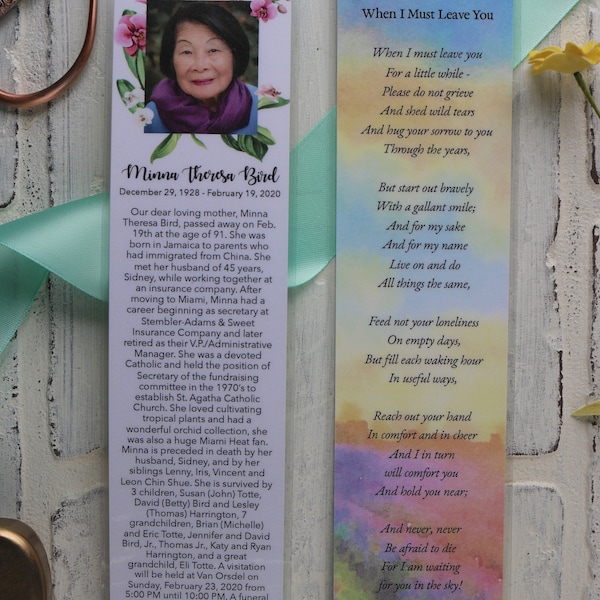 Minna Theresa Bird
December 29, 1928 - February 19, 2020
Our dear loving mother, Minna
Theresa Bird, passed away on Feb.
19th at the age of 91. She was
born in Jamaica to parents who
had immigrated from China. She
met her husband of 45 years,
Sidney, while working together at
an insurance company. After
moving to Miami, Minna had a
career beginning as secretary at
Stembler-Adams & Sweet
Insurance Company and later
retired as their V.P./Administrative
Manager. She was a devoted
Catholic and held the position of
Secretary of the fundraising
committee in the 1970's to
establish St. Agatha Catholic
Church. She loved cultivating
tropical plants and had a
wonderful orchid collection, she
was also a huge Miami Heat fan.
Minna is preceded in death by her
husband, Sidney, and by her
siblings Lenny, Iris, Vincent and
Leon Chin Shue. She is survived by
3 children, Susan (John) Totte,
David (Betty) Bird and Lesley
(Thomas) Harrington, 7
grandchildren, Brian (Michelle)
and Eric Totte, Jennifer and David
Bird, Jr., Thomas Jr., Katy and Ryan
Harrington, and a great
grandchild, Eli Totte. A visitation
will be held at Van Orsdel on
Sunday, February 23, 2020 from
5:00 PM until 10:00 PM. A funeral
When I Must Leave You
When I must leave you
For a little while -
Please do not grieve
And shed wild tears
And hug your sorrow to you
Through the years,
But start out bravely
With a gallant smile;
And for my sake
And for my name
Live on and do
All things the same,
Feed not your loneliness
On empty days,
But fill each waking hour
In useful ways,
Reach out your hand
In comfort and in cheer
And I in turn
will comfort you
And hold you near;
And never, never
Be afraid to die
For I am waiting
for you in the sky!